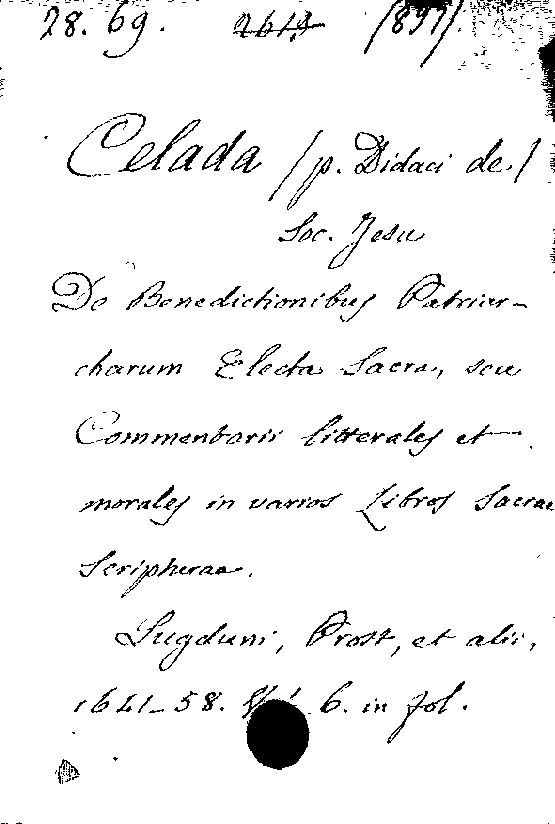 28. 69. 2614 /897/.
Celada /p. Didaci de./
Soc. Jesu
De Benedictionibus Patriar-
charum Electa Sacra, seu
Commentarii litterales et
morales in varios Libros Sacrae
Scripturae.
Lugduni, Prost, et alii,
1641-58. 6. in fol.